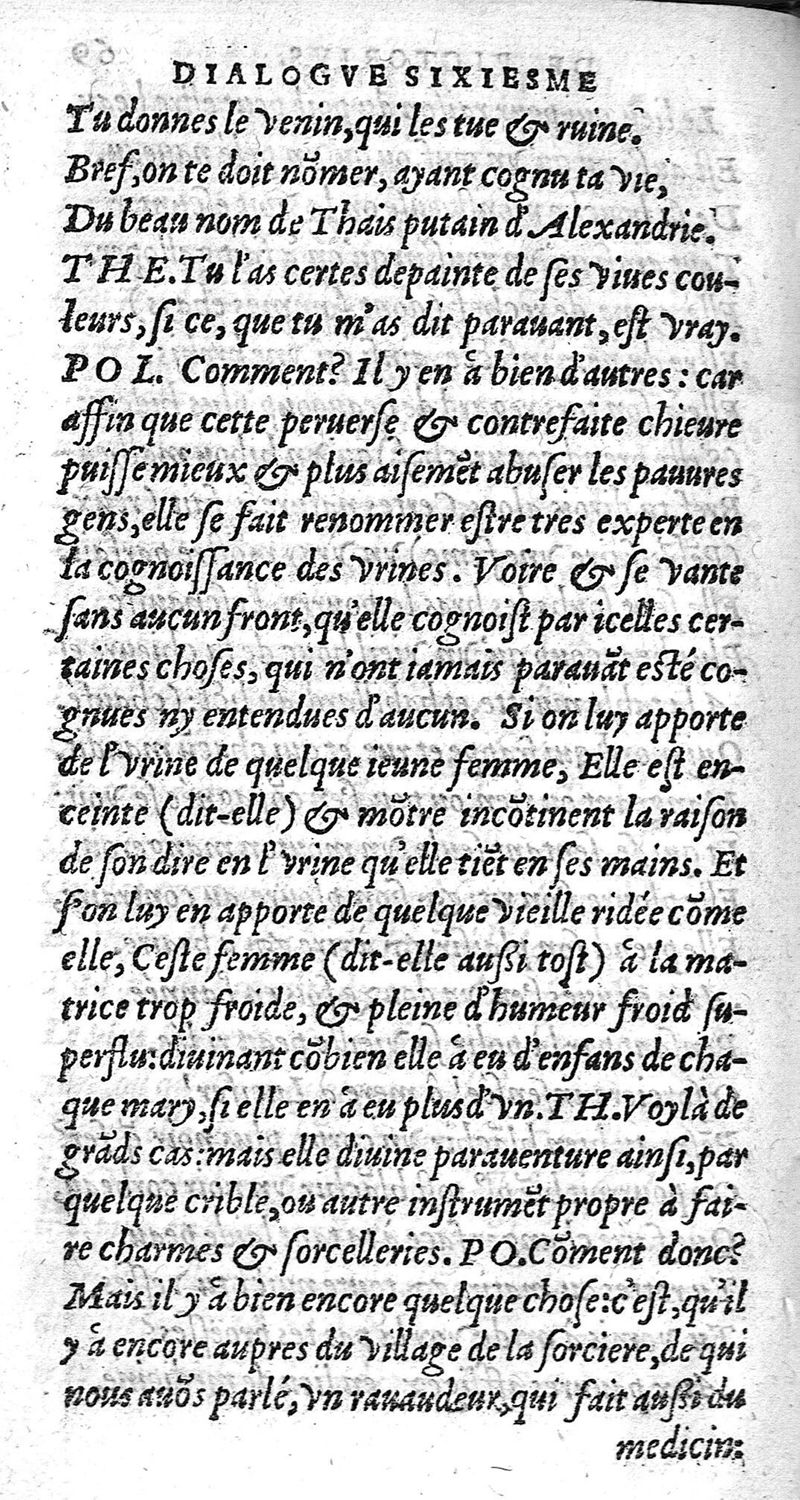 DIALOGVE SIXIESME
Tu donnes le venin, qui les tue & ruine.
Bref, on te doit nõmer, ayant cognu ta vie,
Du beau nom de Thais putain d'Alexandrie.
THE. Tu l'as certes depainte de ſes viues cou-
leurs, ſi ce, que tu m'as dit parauant, eſt vray.
POL. Comment? Il y en à bien d'autres: car
affin que cette peruerſe & contrefaite chieure
puiſſe mieux & plus aiſemẽt abuſer les pauures
gens, elle ſe fait renommer eſtre tres experte en
la cognoiſſance des vrines. Voire & ſe vante
ſans aucun front, qu'elle cognoiſt par icelles cer-
taines choſes, qui n'ont iamais parauãt eſté co-
gnues ny entendues d'aucun. Si on luy apporte
de l'vrine de quelque ieune femme, Elle eſt en-
ceinte (dit-elle) & mõtre incõtinent la raiſon
de ſon dire en l'vrine qu'elle tiẽt en ſes mains. Et
ſ'on luy en apporte de quelque vieille ridée cõme
elle, Ceſte femme (dit-elle auſſi toſt) à la ma-
trice trop froide, & pleine d'humeur froid ſu-
perflu: diuinant cõbien elle à eu d'enfans de cha-
que mary, ſi elle en à eu plus d'vn. TH. Voylà de
grãds cas: mais elle diuine parauenture ainſi, par
quelque crible, ou autre inſtrumẽt propre à fai-
re charmes & ſorcelleries. PO. Cõment donc?
Mais il y à bien encore quelque choſe: c'eſt, qu'il
y à encore aupres du village de la ſorciere, de qui
nous auõs parlé, vn rauaudeur, qui fait auſſi du
medicin: